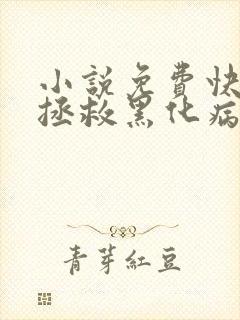 小説免費快
拯救黑化病
青芽紅豆